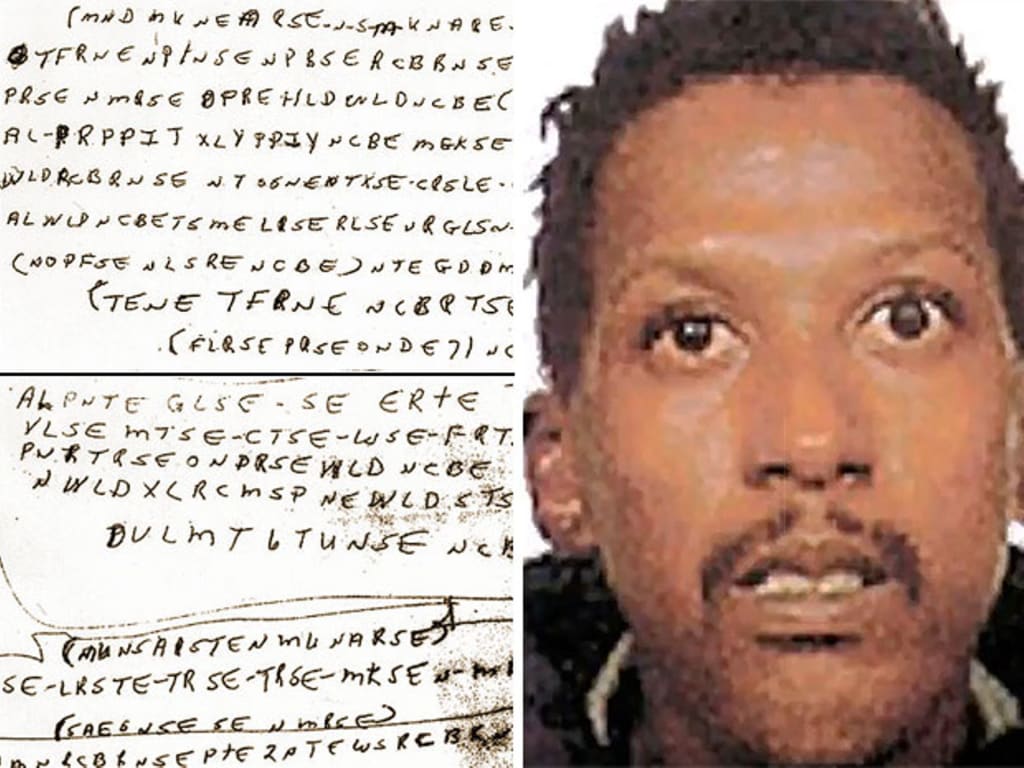 (MND MKNEARSE-N-S-M-KNARE-
TFRNENPINSENPBSERCBBNSE
PRSE NMRSE OPREHLDWLDNCBE(
AL-PRPPIT XLYPPIYNCBE MGKSE
WLDRCBRNSE NTOGNENTXSE-CRSLE-
ALWLDNCBETSMELRSERLSENRGLSN-
(NOPFSENLSRENCBE)NTEGDDM
(TENE TFRNE NCBRTSE
(FLRSE PRSEONDE71 NC
ALPNTE GLSE-SE ERTE
VLSE MTSE-CTSE-WSE-FRT
PNRTRSEONDRSEWLD NCBE
NWLDXLRCMSP NEWLDSTS
DULMT6TUNSE NCB
(MUNSARSTENMUNARSE)
SE-LRSTE-TRSE-TRSE-MKSEN-M
(SAEGNSESENMBSE)
MNRCBRNSEPTE2NTEWSRCB